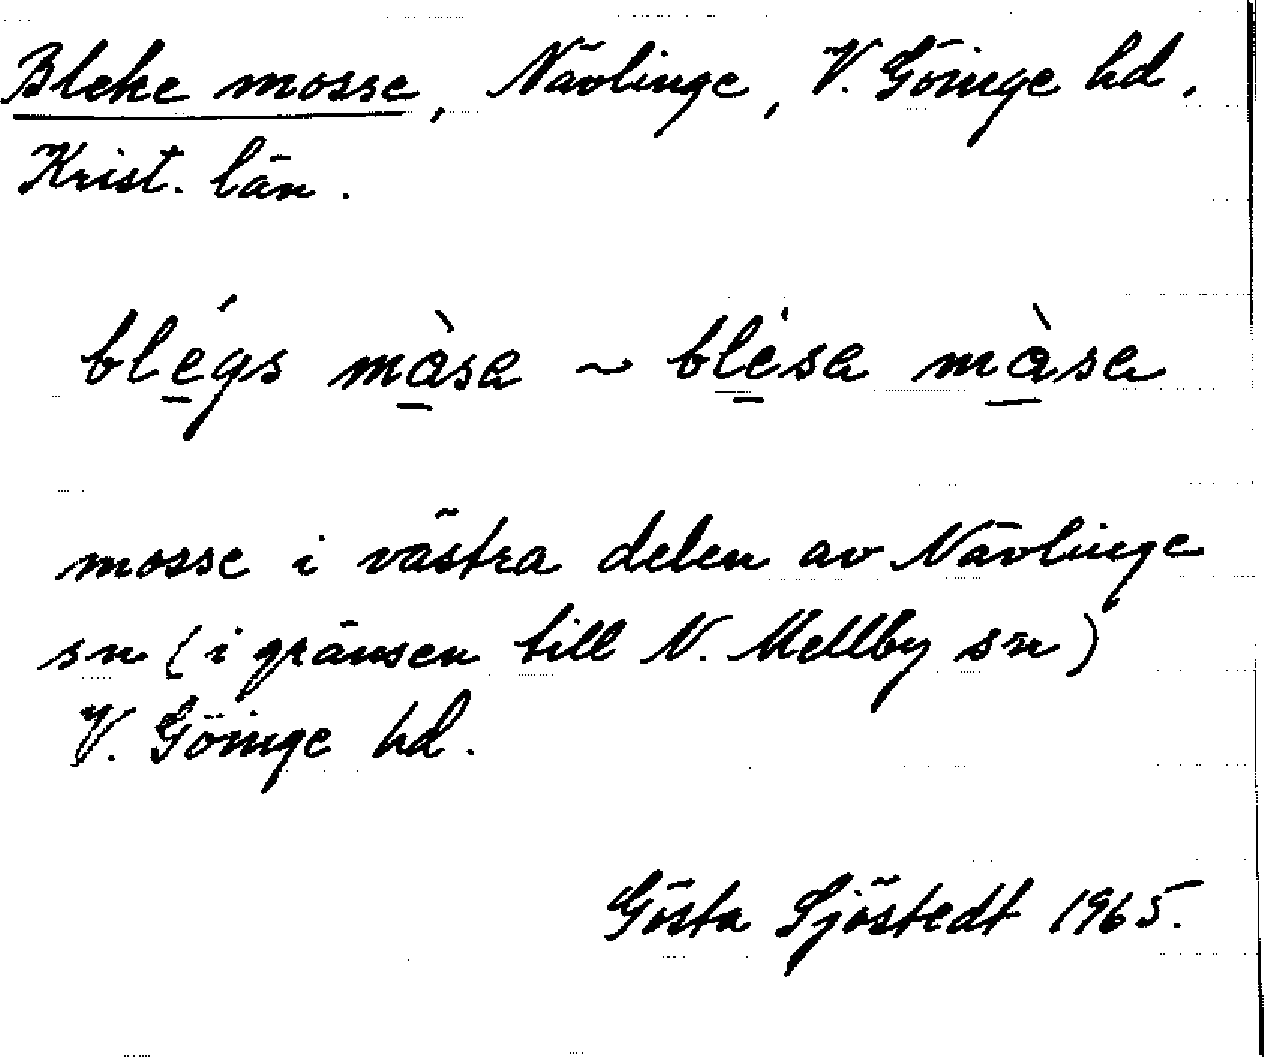 Bleke mosse, Nävlinge, V. Göinge hd.
Krist. län.
blégs màsa ~ blésa màsa
mosse i västra delen av Nävlinge
sn (i gränsen till N. Mellby sn)
V. Göinge hd.
Gösta Sjöstedt 1965.